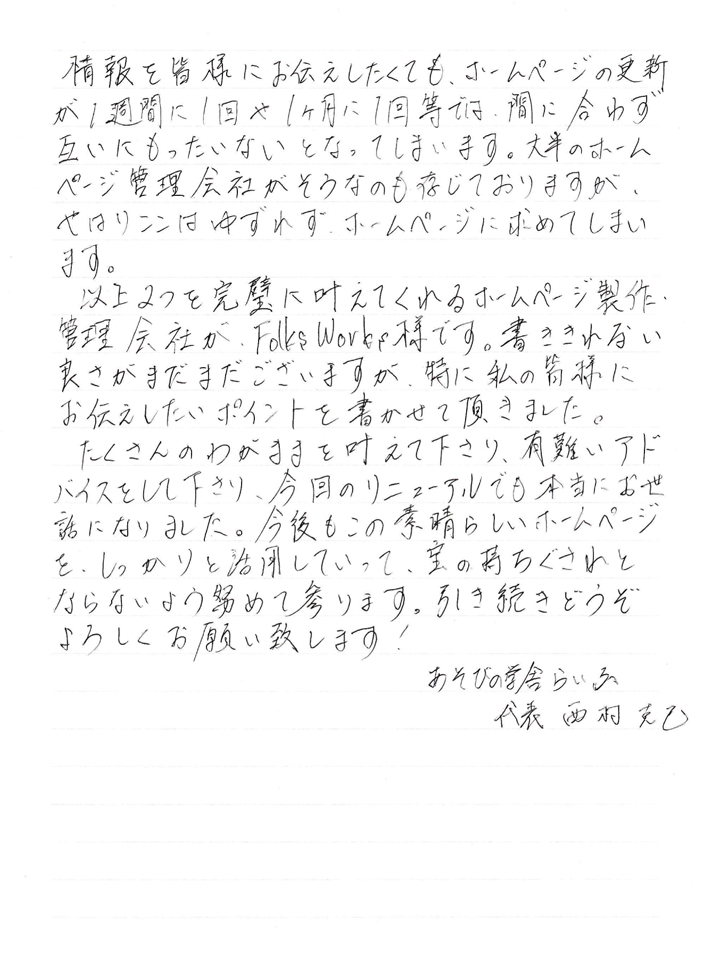 情報を皆様にお伝えしたくても、ホームページの更新
が1週間に1回や1ヶ月に1回等では、間に合わず
互いにもったいないとなってしまいます。大半のホーム
ページ管理会社がそうなのも存じておりますが、
やはりココはゆずれず、ホームページに求めてしまい
ます。
以上2つを完璧に叶えてくれるホームページ製作、
管理会社が、Folks Works様です。書ききれない
良さがまだまだございますが、特に私の皆様に
お伝えしたいポイントを書かせて頂きました。
たくさんのわがままを叶えて下さり、有難いアド
バイスをして下さり、今回のリニューアルでも本当にお世
話になりました。今後もこの素晴らしいホームページ
を、しっかりと活用していって、宝の持ちぐされと
ならないよう努めて参ります。引き続きどうぞ
よろしくお願い致します!
あそびの学舎らいふ
代表 西村 克己